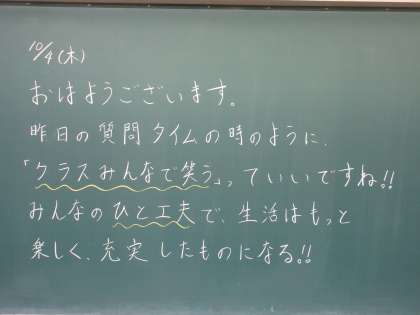 10/4(木)
おはようございます。
昨日の質問タイムの時のように、
「クラスみんなで笑う」っていいですね!!
みんなのひと工夫で、生活はもっと
楽しく、充実したものになる!!